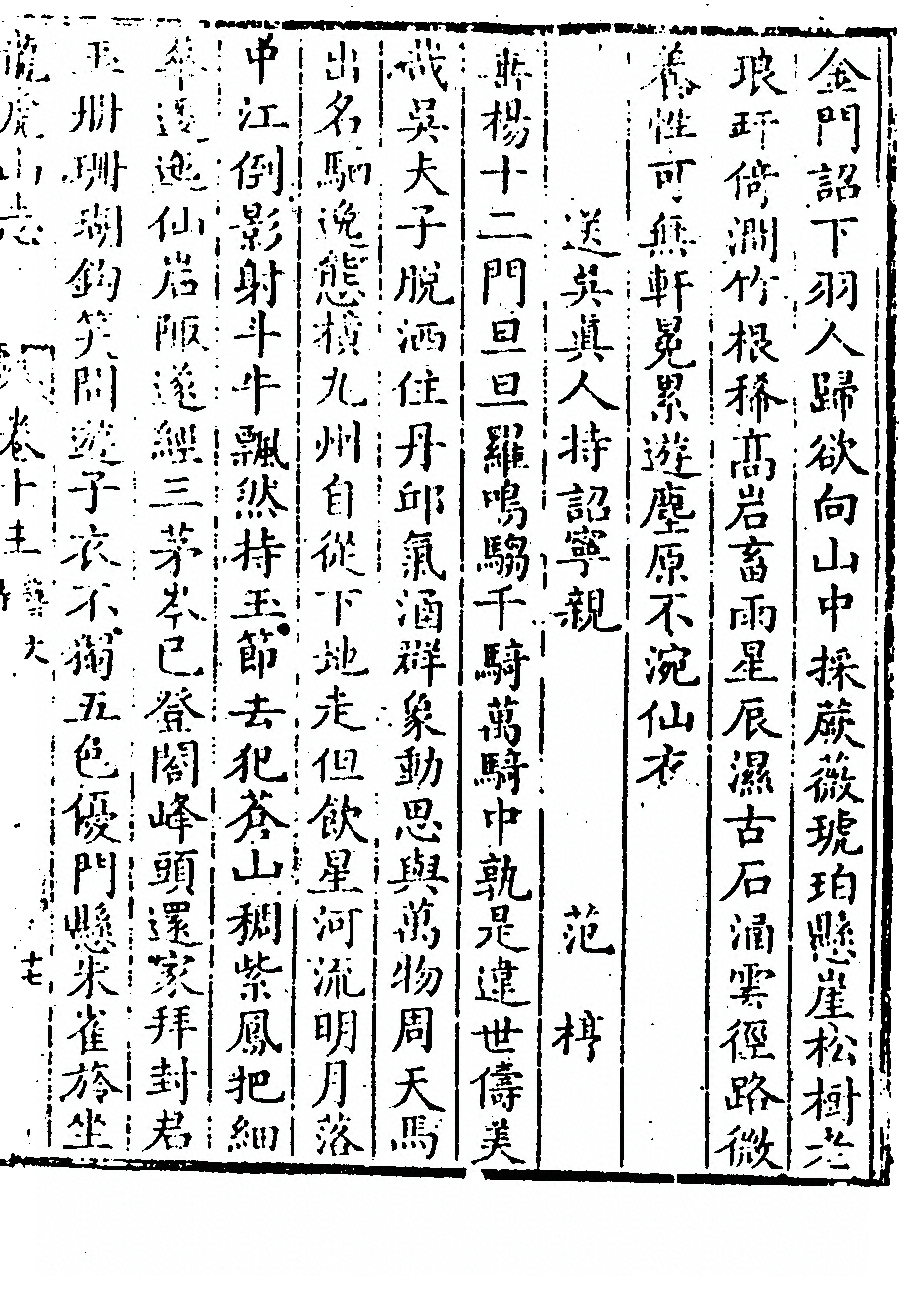 金門詔下羽人歸欲向山中採蕨薇琥珀懸崖松樹老
琅玕倚澗竹根稀高岩畜雨星辰濕古石涵雲徑路微
養性可無軒冕累遊塵原不涴仙衣
送吳眞人持詔寧親 范梈
垂楊十二門旦旦羅鳴騶千騎萬騎中孰是違世儔美
哉吳夫子脫洒住丹邱氣涵群象動思與萬物周天馬
出名駟逸態橫九州自從下地走但飲星河流明月落
中江倒影射斗牛飄然持玉節去犯蒼山稠紫鳳把細
華逶迤仙岩陬遂經三茅岑已登閣峰頭還家拜封君
玉珊珊瑚鈎笑問遊子衣不搦五色優門懸朱雀旂坐
龍虎山志 卷十 藝文 十七